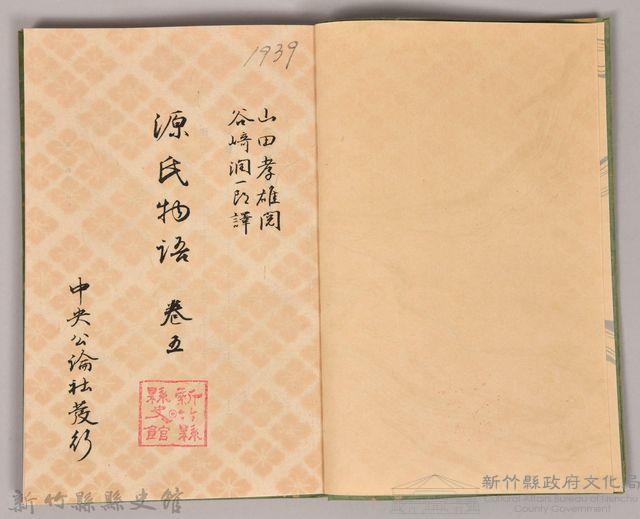 1939
山田孝雄閲
谷崎潤一郎譯
源氏物語 卷五
中央公論社發行
新竹縣
縣史館
新竹縣縣史館
新竹縣政府文化局
Cultural Affairs Bureau of Hsinchu
County Government